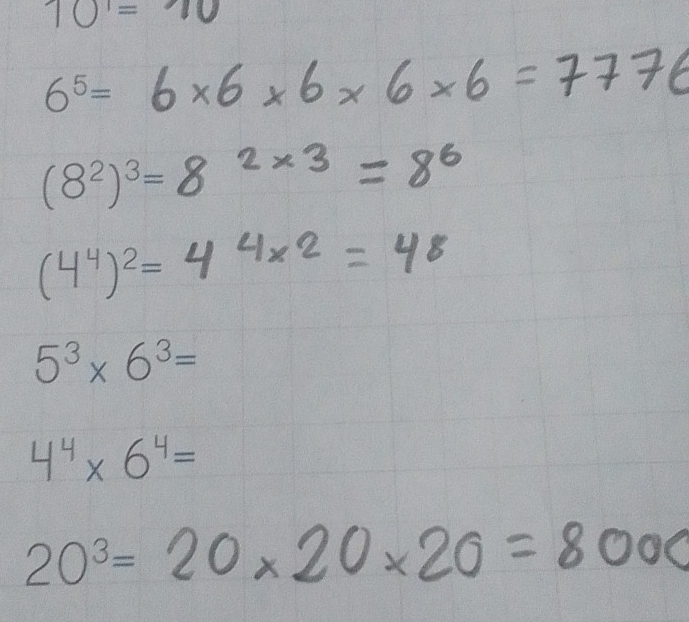 10¹= 10
6⁵= 6×6×6×6×6=7776
(8²)³=8 ²ˣ³ =8⁶
(4⁴)²=4 ⁴ˣ² =4⁸
5³×6³=
4⁴×6⁴=
20³= 20×20×20=8000